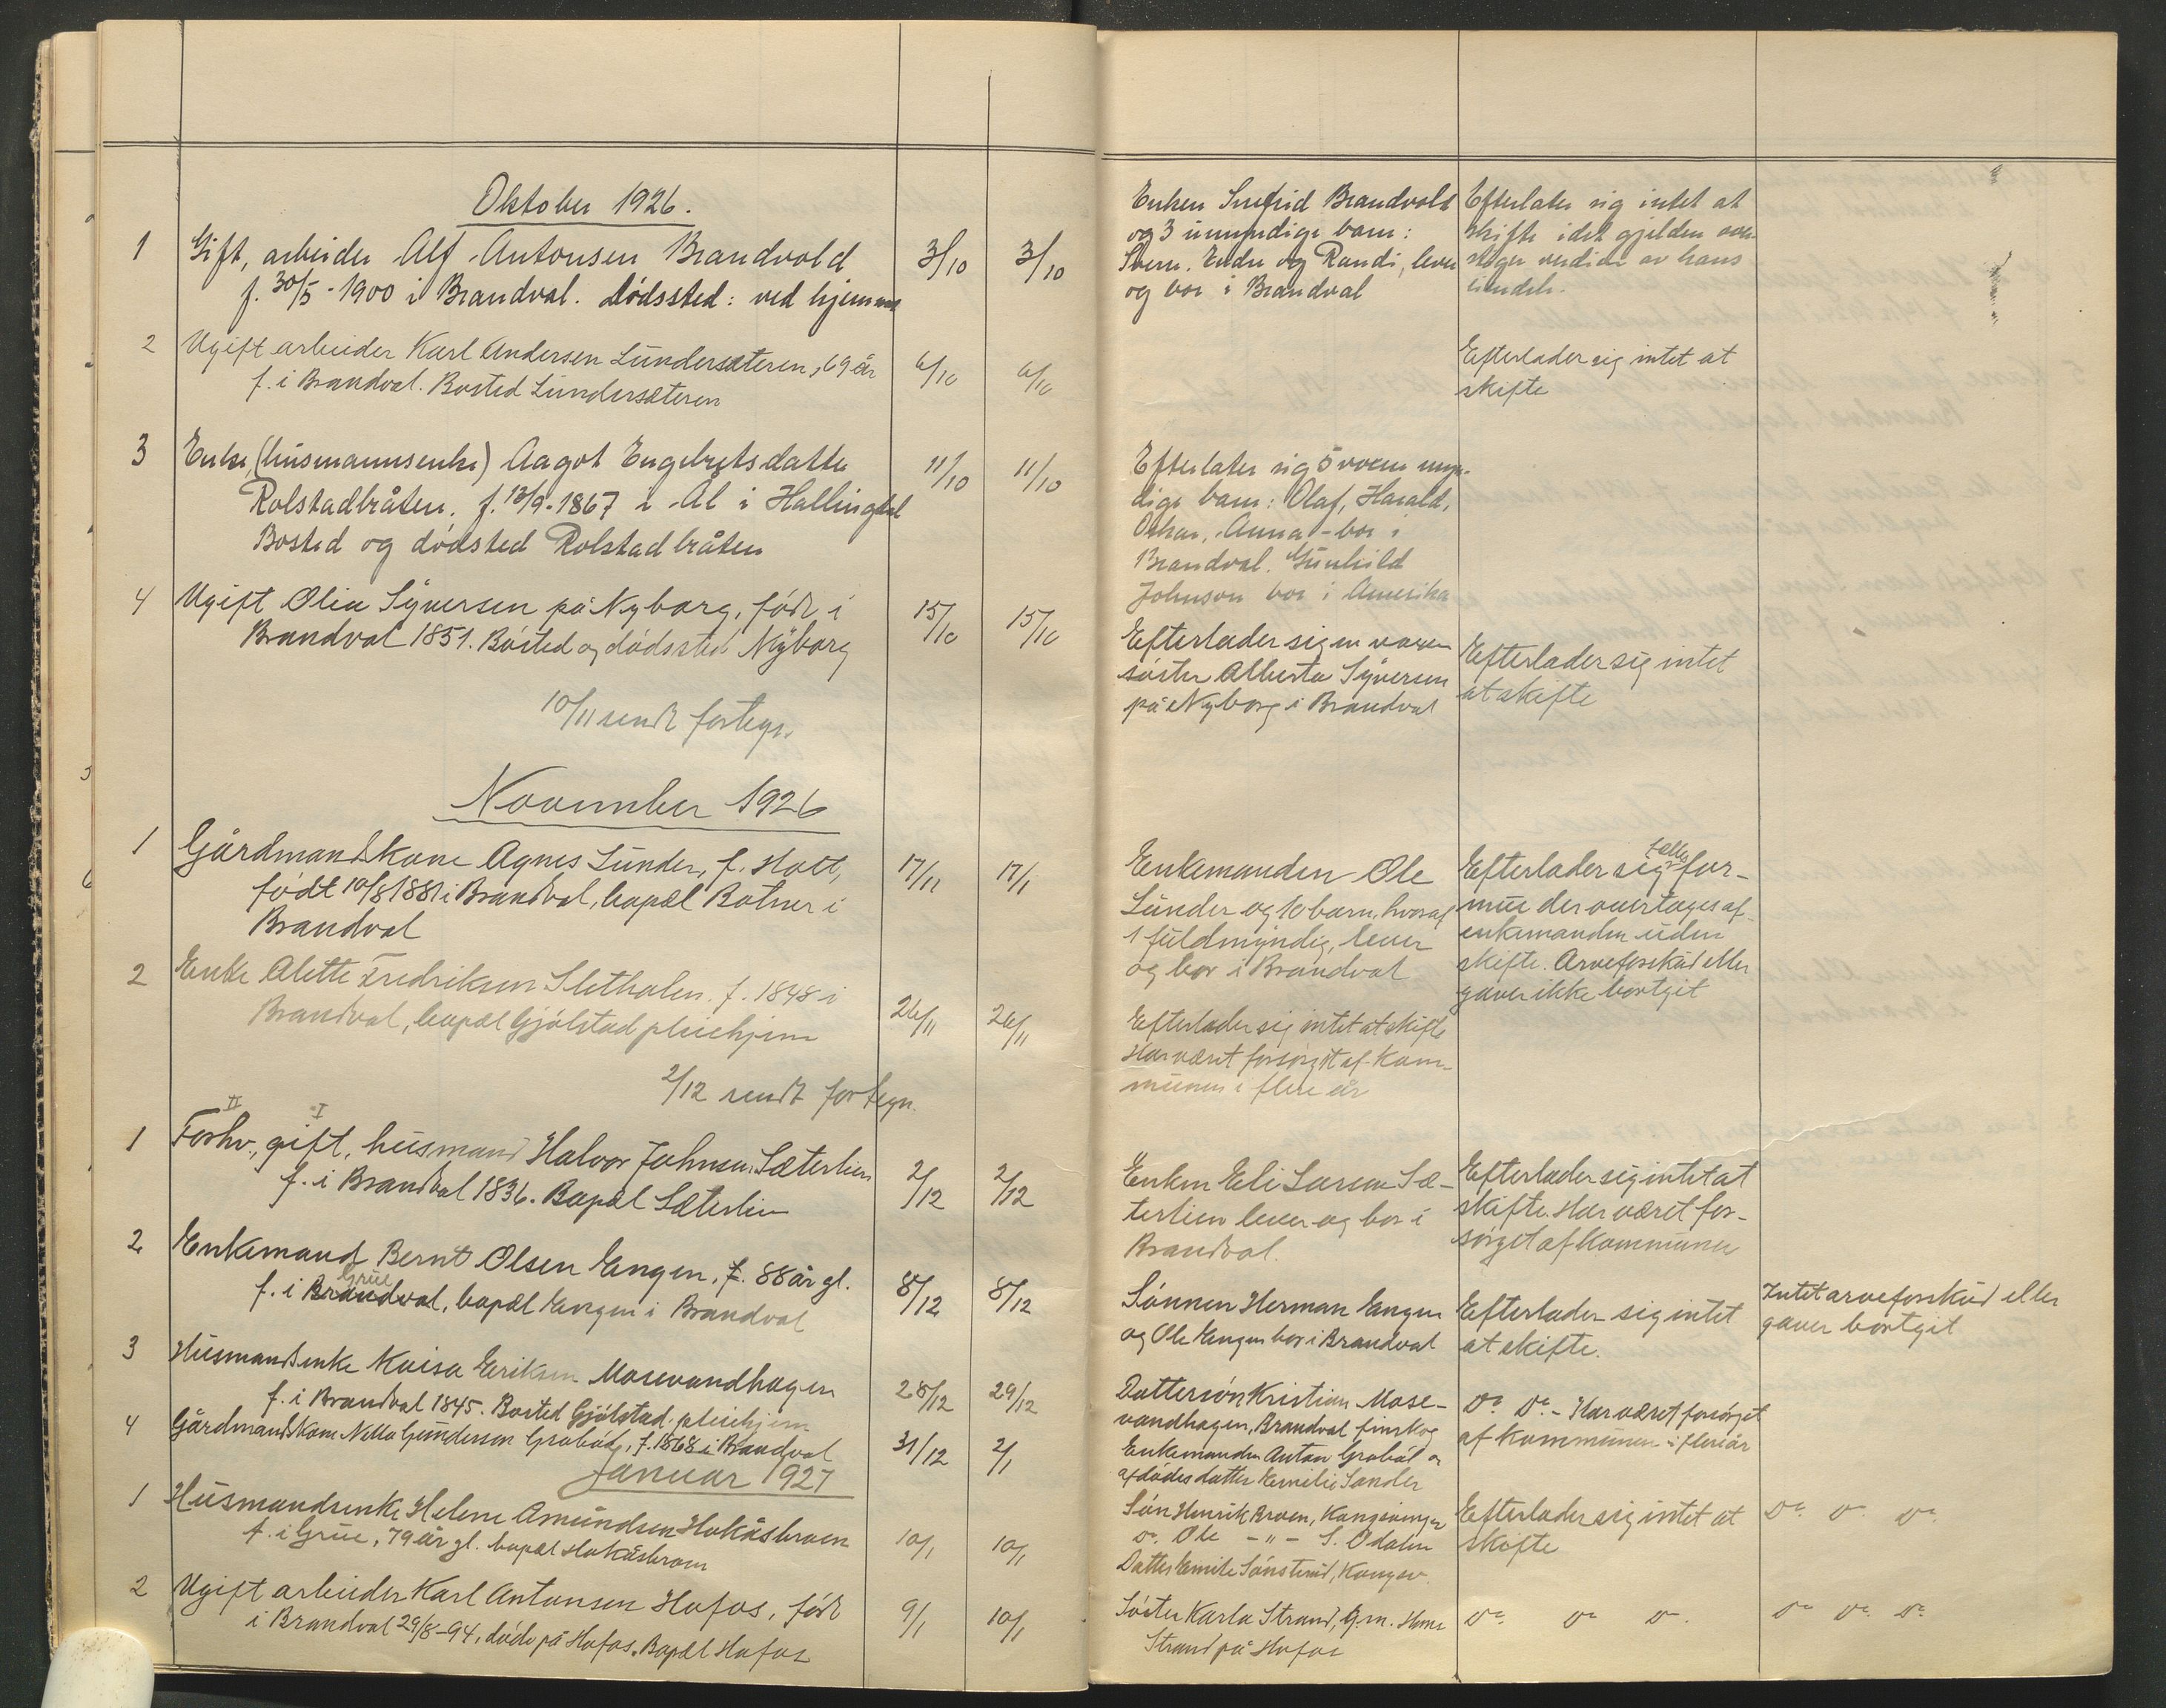 Oktober 1926.
1 Gift, arbeider Alf Antonsen Brandvold 3/10 3/10
f. 30/5-1900 i Brandval. Dødssted: ved hjemmet
2 Ugift arbeider Karl Andersen Lundersæteren, 69 år 6/10 6/10
f. i Brandval. Bosted Lundersæteren
3 Enke, (husmannsenke) Aagot Engebretsdatter 11/10 11/10
Rolstadbråten. f. 13/9-1867 i Ål i Hallingdal
Bosted og dødsted Rolstadbråten
4 Ugift Olea Syversen på Nyborg, født i 15/10 15/10
Brandval 1851. Bosted og dødssted Nyborg
10/11 sendt fortegn.
November 1926
1 Gårdmandskone Agnes Lunder, f. Holt, 17/11 17/1
født 10/8 1881 i Brandval, bopæl Rotner i
Brandval
2 Enke Alette Fredriksen Sletholen. f. 1848 i 26/11 26/11
Brandval, bopæl Gjølstad pleiehjem
2/12 sendt fortegn.
II I
1 Forhv., gift, husmand Halvor Johnsen Sæterlien 2/12 2/12
f. i Brandval 1836. Bopæl Sæterlien
2 Enkemand Bernt Olsen Engen, f. 88 år gl. 8/12 8/12
Grue
f. i Brandval, bopæl Engen i Brandval
3 Husmandsenke Kaisa Eriksen Mosevandhagen 28/12 29/12
f. i Brandval 1845. Bosted Gjølstad pleiehjem
4 Gårdmandskone Netta Gundersen Grabøl, f. 1868 i Brandval 31/12 2/1
Januar 1927
1 Husmandsenke Helene Amundsen Hokåsbroen 10/1 10/1
f. i Grue, 79 år gl. bopæl Hokåsbroen
2 Ugift arbeider Karl Antonsen Hofos, født 9/1 10/1
i Brandval 29/8-94, døde på Hofos. Bopæl Hofos
Enken Brandvold
og 3 umyndige barn:
Sverre. Endre og Randi, lever
og bor i Brandval
Efterlater sig 5 voxne myn-
dige barn: Olaf, Harald,
Oskar, Anna - bor i
Brandval. Gunhild
Johnson bor i Amerika
Efterlader sig en voxen
søster Alberta Syversen
på Nyborg i Brandval
Enkemanden Ole
Lunder og 10 barn, hvoraf
1 fuldmyndig, lever
og bor i Brandval
Efterlader sig intet at skifte
Har været forsørget af kom-
munen i flere år
Enken Eli Larsen Sæ-
terlien lever og bor i
Brandval.
Sønnen Herman Engen
og Ole Engen bor i Brandval
Dattersøn Kristian Mose-
vandhagen, Brandval finskog
Enkemanden Anton Grabøl og
afdødes datter Sander
Søn Henrik Broen, Kongsvinger
Do. Ole -"- S. Odalen
Datter Emilie Sønsterud, Kongsv.
Søster Karla Strand, Gm. Hans
Strand på Hofos
Efterlater sig intet at
skifte idet gjelden over-
stiger verdien av hans
eiendele.
Efterlader sig intet at
skifte
Efterlader sig intet
at skifte
fælles
Efterlader sig for-
mue der overtages af
enkemanden uden
skifte. Arveforskud eller
gaver ikke bortgit
Efterlader sig intet at
skifte. Har været for-
sørget af kommunen
Efterlader sig intet
at skifte.
Do. Do. - Har været forsørget
af kommunen i flere år
Efterlader sig intet at
skifte
Do. Do. Do.
Intet arveforskud eller
gaver bortgit
Do. Do. Do.
Do. Do. Do.